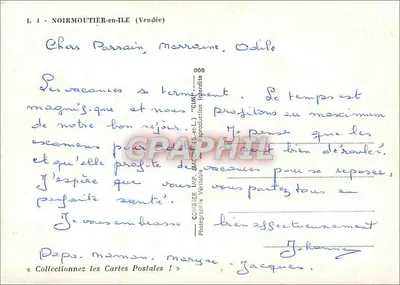 L 4 - NOIRMOUTIER-en-ILE (Vendée)
Chers Parrain, Marraine, Odile
Les vacances se terment. Le temps est
magnifique et nous profitons au maximum
de notre bon séjour. Je pense que les
examens pour se sont bien déroulés
et qu'elle profite des vacances pour se reposer.
J'espère que vous vous portez tous en
parfaite santé.
Je vous embrasse bien affectueusement
Johanne
Papa. Maman. Maryse. Jacques.
« Collectionnez les Cartes Postales ! »
COMBIER IMP. MACON (S.-et-L.) "CIM"
Photographie Véritable - Reproduction Interdite
CPAPHIL